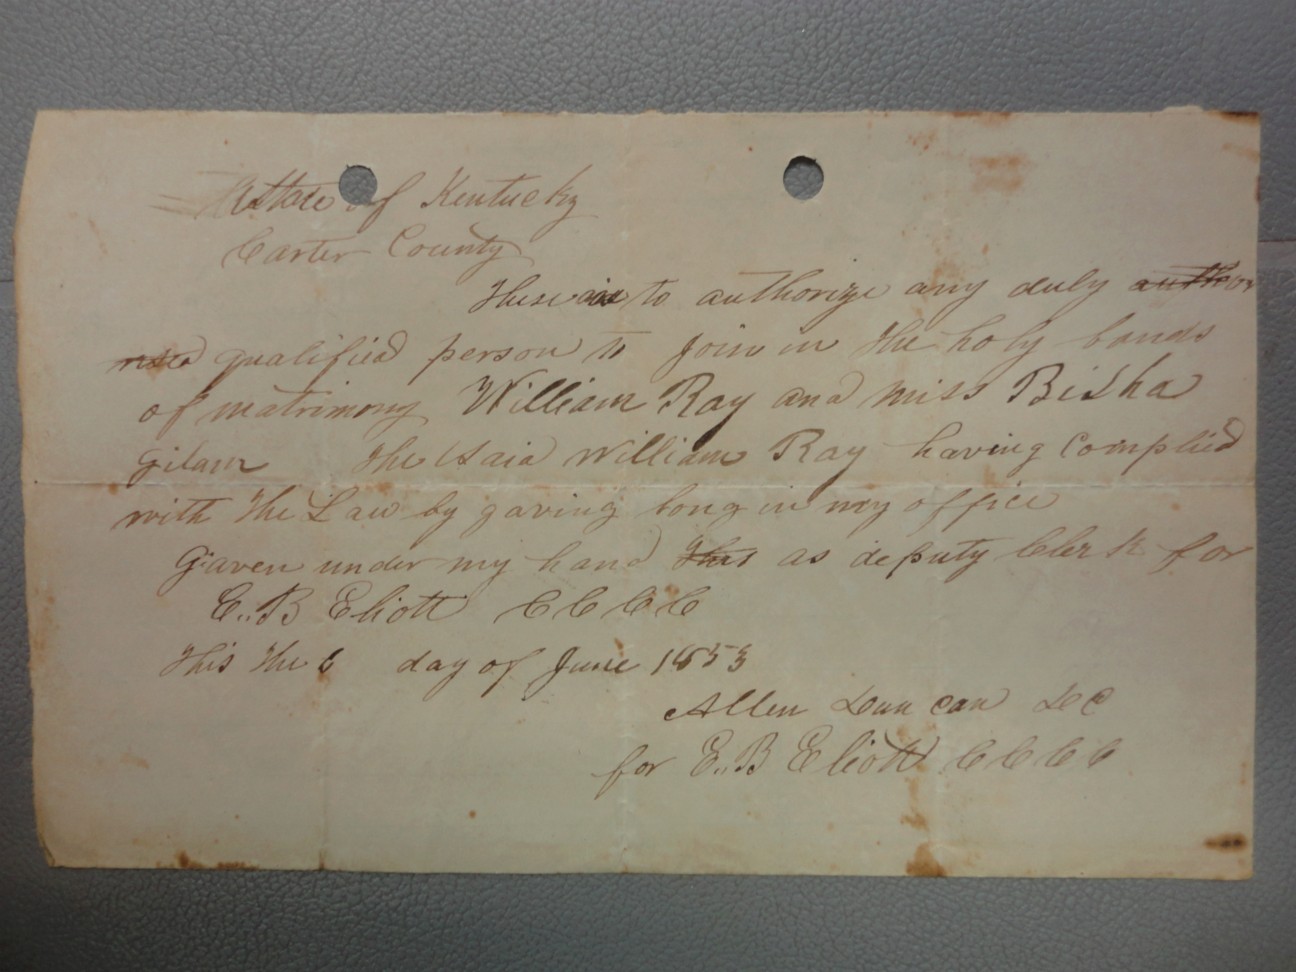 State of Kentucky
Carter County
These is to authorize any duly author
rised qualified person to Join in the holy bands
of matrimony William Ray and miss Bisha
Gilam The Said William Ray having Complied
with the Law by gaving bong in my office
Gaven under my hand this as deputy Clerk for
E.. B Eliott C C C C
This the 6 day of June 1853
Allen Duncan DC
for E.. B Eliott C C C C